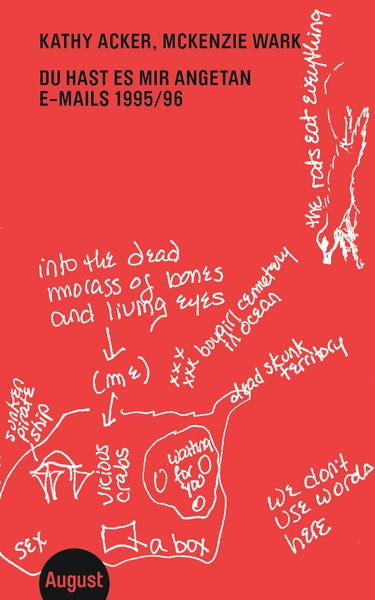 KATHY ACKER, MCKENZIE WARK
DU HAST ES MIR ANGETAN
E-MAILS 1995/96
the rats eat everything
into the dead
morass of bones
and living eyes
(me)
xxx
xxx boygirl cemetery
in ocean
dead skunk
territory
sunken
pirate
ship
vicious
crabs
waiting
for
you
we don't
use words
here
sex
a box
August